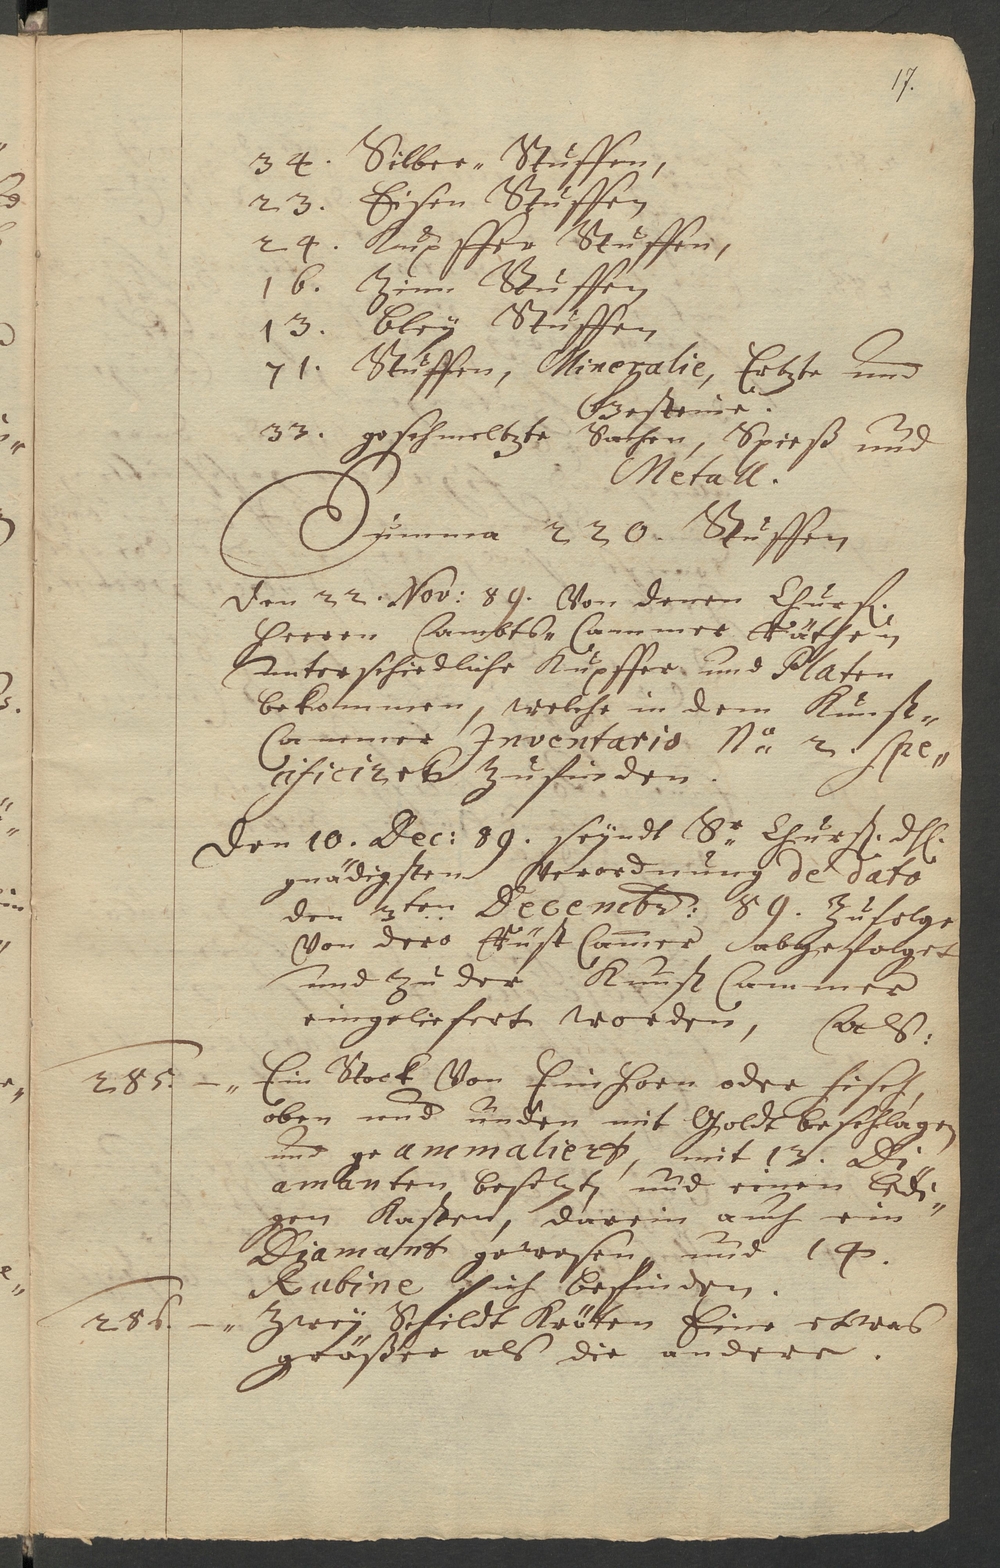 17.
34. Silber„ Stuffen,
23. Eisen Stuffen
24. Kupffer Stuffen,
16. Zinn Stuffen
13. Bley Stuffen
71. Stuffen, Mineralie, Ertzte und
Gesteine.
33. geschmeltzte Sachen, Spieß und
Metall.
Summa 220. Stuffen
Den 22. Nov: 89. Von denen Churf.
Herren Ambts„ Cammer Räthen
unterschiedliche Kupffer und Platen
bekommen, welche in dem Kunst„
Cammer Inventario No 2. spe„
cificiret zufinden.
Den 10. Dec: 89. seyndt Sr Churf. dhl.
gnädigsten Verordnung de dato
den 3ten Decembr: 89. Zufolge
Von dero Rüst Cam̄er abgefolget
und zu der Kunst Cammer
eingeliefert worden, Als:
285. —„ Ein Stock Von Einhorn oder fisch,
oben und unden mit Goldt beschlagen
und geammaliert, mit 13. Di„
amanten besetzt, und einen ledi„
gen Kasten, darein auch ein
Diamant gewesen, und 14.
Rubine sich befinden.
286. —„ Zwey Schildt Kröten Eine etwas
größer als die andere.